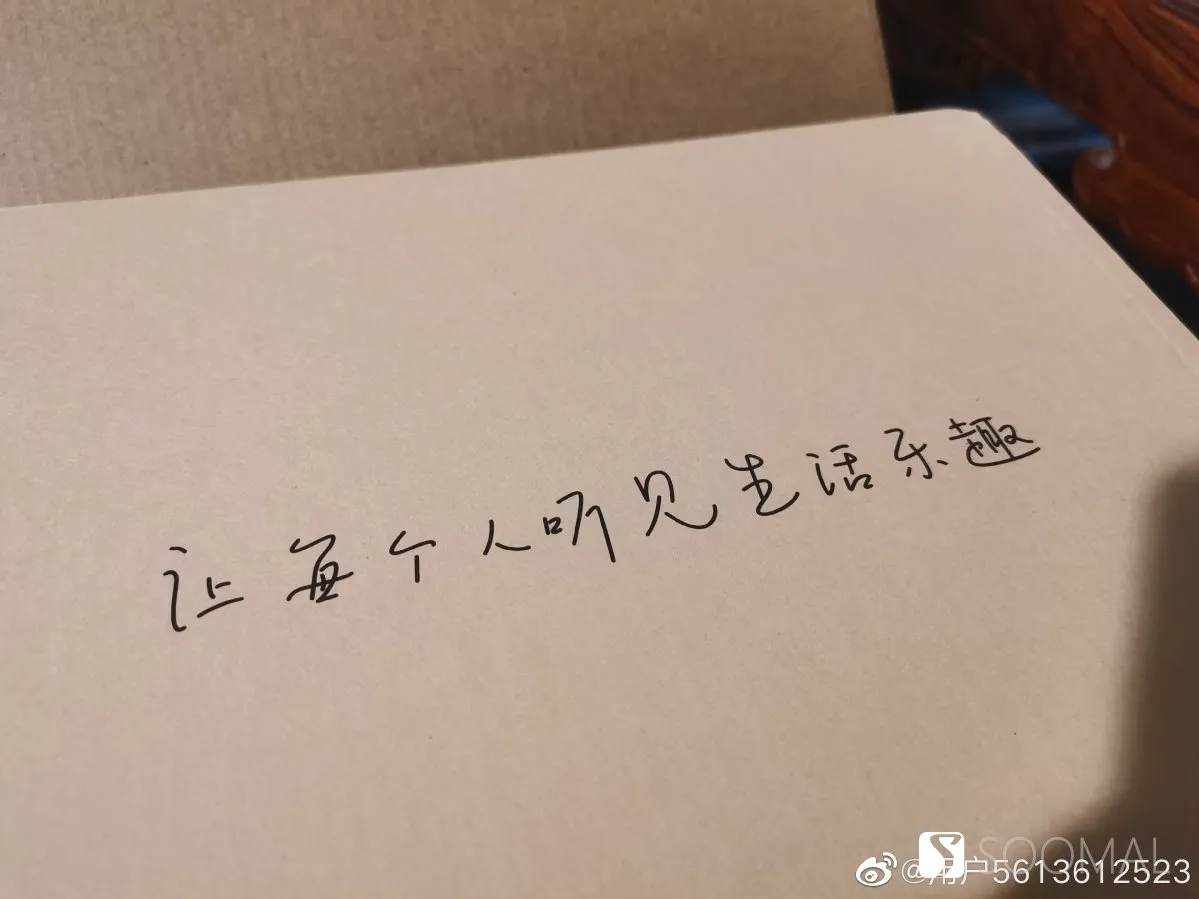 让每个人听见生活乐趣
SOOMAL
@用户5613612523